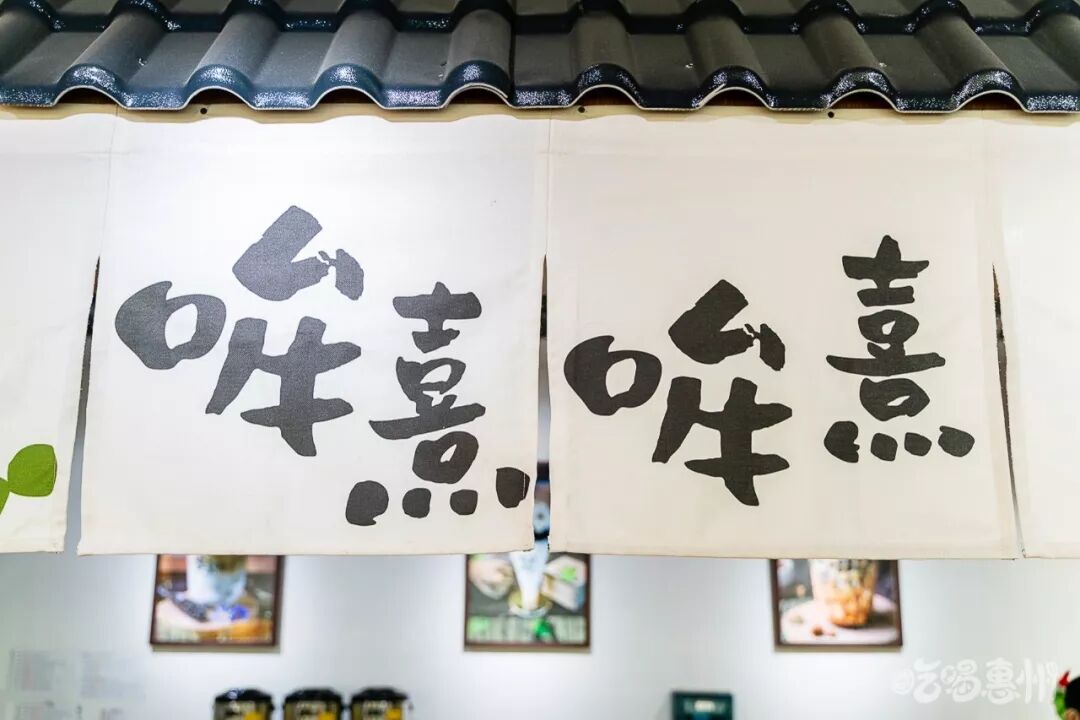 哞熹
哞熹
吃喝惠州